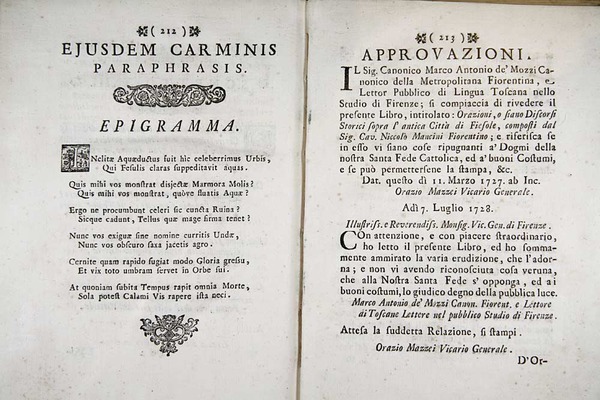 ( 212 )
EJUSDEM CARMINIS
PARAPHRASIS.
EPIGRAMMA.
INclitæ Aquæductus fuit hîc celeberrimus Urbis,
Qui Fesulis claras suppeditavit aquas.
Quis mihi vos monstrat disjectæ Marmora Molis?
Quis mihi vos monstrat, quòve fluatis Aquæ?
Ergo ne procumbunt celeri sic cuncta Ruina?
Sicque cadunt, Tellus quæ mage firma tenet?
Nunc vos exiguæ sine nomine curritis Undæ,
Nunc vos obscuro saxa jacetis agro.
Cernite quam rapido fugiat modo Gloria gressu,
Et vix toto umbram servet in Orbe sui.
At quoniam subita Tempus rapit omnia Morte,
Sola potest Calami Vis rapere ista neci.
( 213 )
APPROVAZIONI.
IL Sig. Canonico Marco Antonio de' Mozzi Ca-
nonico della Metropolitana Fiorentina, e
Lettor Pubblico di Lingua Toscana nello
Studio di Firenze; si compiaccia di rivedere il
presente Libro, intitolato: Orazioni, o siano Discorsi
Storici sopra l' antica Città di Fiesole, composti dal
Sig. Cav. Niccolò Mancini Fiorentino; e riferisca se
in esso vi siano cose ripugnanti a' Dogmi della
nostra Santa Fede Cattolica, ed a' buoni Costumi,
e se può permettersene la stampa, &c.
Dat. questo dì 11. Marzo 1727. ab Inc.
Orazio Mazzei Vicario Generale.
Adì 7. Luglio 1728.
Illustriss. e Reverendiss. Monsig. Vic. Gen. di Firenze.
COn attenzione, e con piacere straordinario,
ho letto il presente Libro, ed ho somma-
mente ammirato la varia erudizione, che l'ador-
na; e non vi avendo riconosciuta cosa veruna,
che alla Nostra Santa Fede s' opponga, ed ai
buoni costumi, lo giudico degno della pubblica luce.
Marco Antonio de' Mozzi Canon. Fiorent. e Lettore
di Toscane Lettere nel pubblico Studio di Firenze.
Attesa la suddetta Relazione, si stampi.
Orazio Mazzei Vicario Generale.
D'Or-